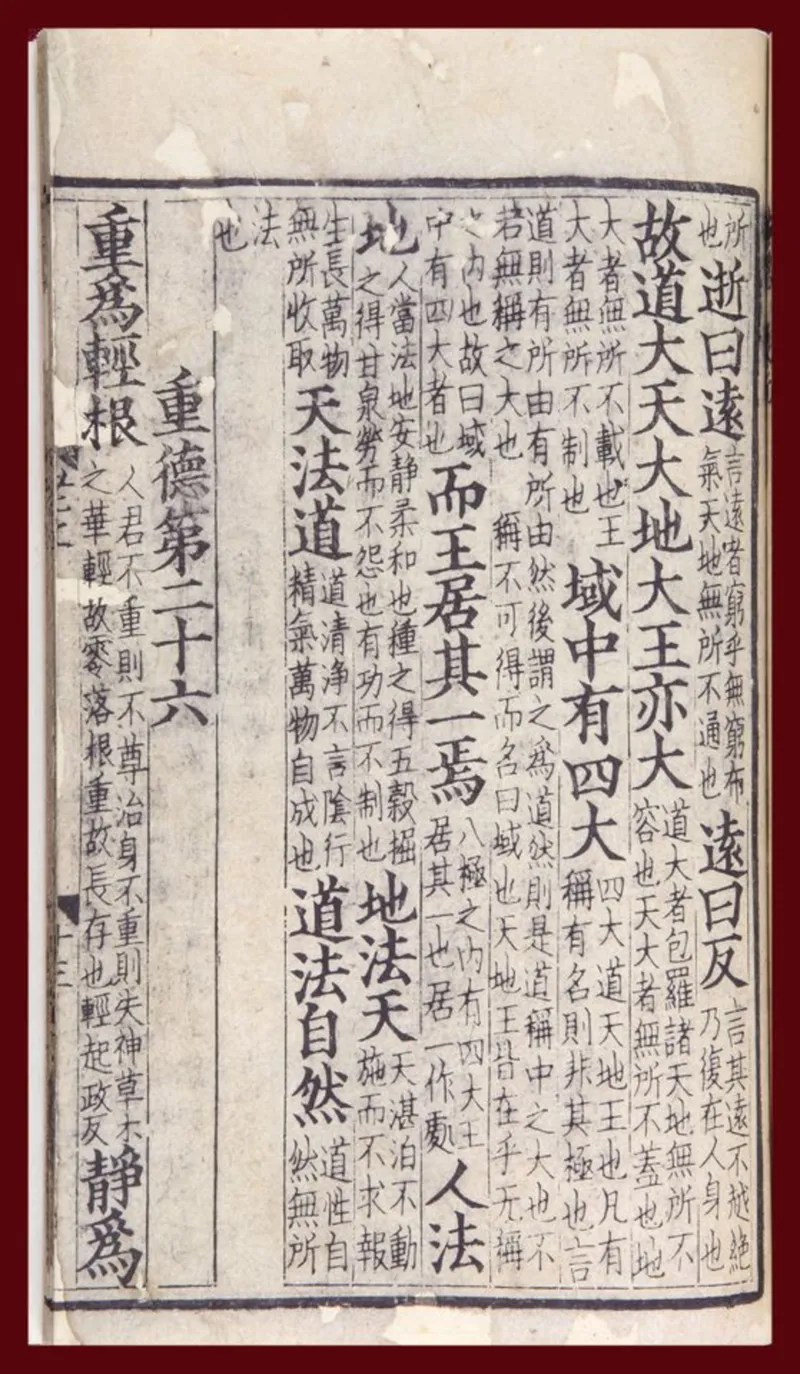 所也逝曰遠言遠者窮乎無窮布氣天地無所不通也遠曰反言其遠不越絶乃復在人身也
故道大天大地大王亦大道大者包羅諸天地無所不容也天大者無所不蓋也地
大者無所不載也王大者無所不制也域中有四大四大道天地王也凡有稱有名則非其極也言
道則有所由有所由然後謂之爲道然則是道稱中之大也不若無稱之大也稱不可得而名曰域也天地王皆在乎无稱
之内也故曰域中有四大者也而王居其一焉八極之内有四大王居其一也居一作處人法
地人當法地安靜柔和也種之得五穀掘之得甘泉勞而不怨也有功而不制也地法天天湛泊不動施而不求報
生長萬物無所收取天法道道清淨不言陰行精氣萬物自成也道法自然道性自然無所
法也
重德第二十六
重爲輕根人君不重則不尊治身不重則失神草木之華輕故零落根重故長存也輕起政反靜爲
十三